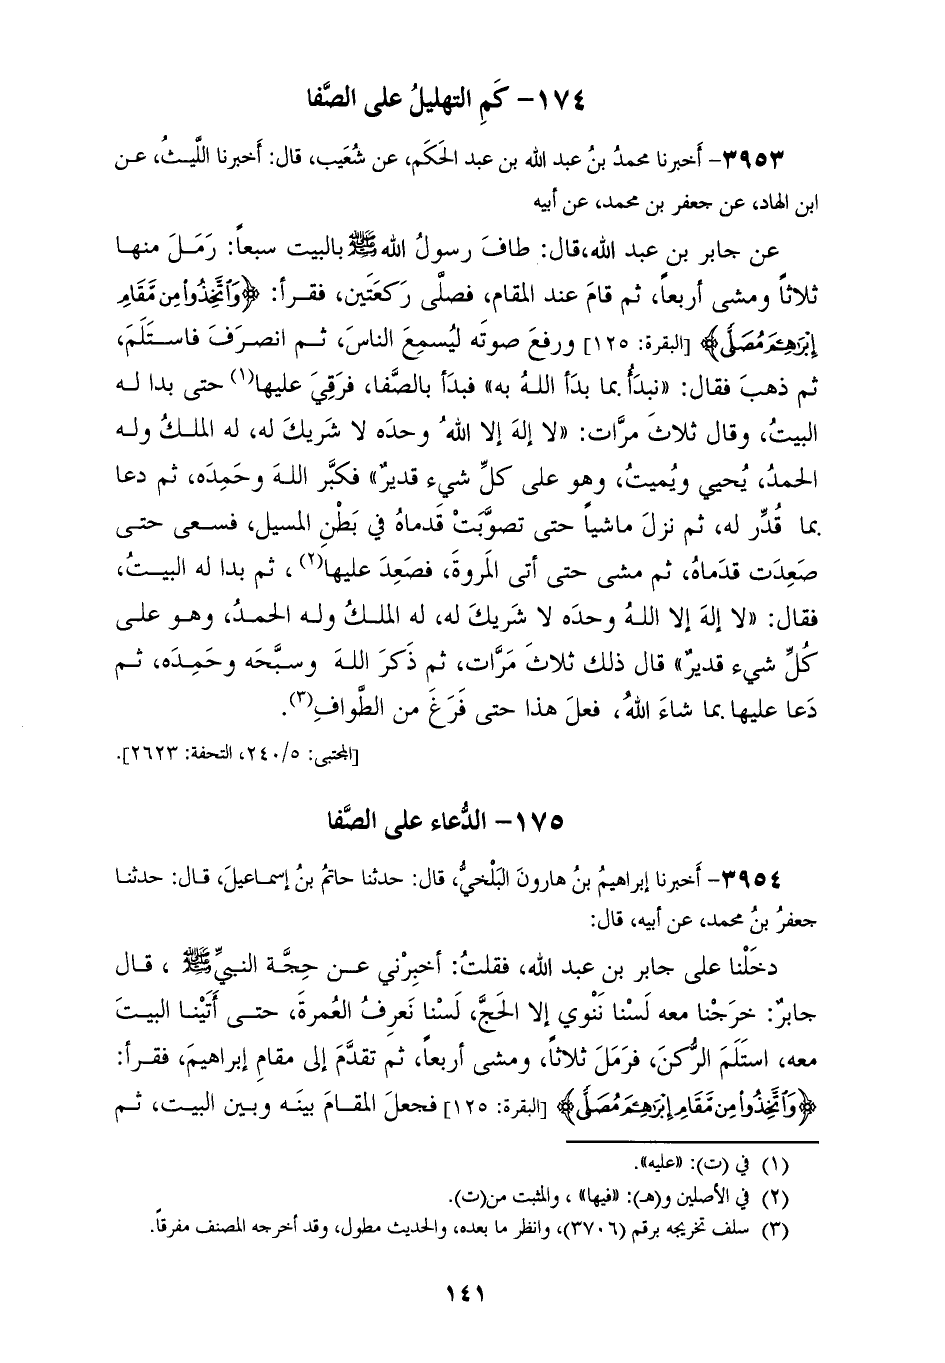 ١٧٤- كَمِ التهليلُ على الصَّفا
٣٩٥٣- أَخبرنا محمدُ بنُ عبد الله بن عبد الحَكَم، عن شُعَيب، قال: أَخبرنا اللَّيثُ، عن
ابن الهاد، عن جعفر بن محمد، عن أبيه
عن جابر بن عبد الله،قال: طافَ رسولُ الله ﷺ بالبيت سبعاً: رَمَلَ منها
ثلاثاً ومشى أربعاً، ثم قامَ عند المقام، فصلَّى رَكعَتَين، فقرأ: ﴿وَٱتَّخِذُوا۟ مِن مَّقَامِ
إِبْرَٰهِـۧمَ مُصَلًّى﴾ [البقرة: ١٢٥] ورفعَ صوتَه ليُسمِعَ الناسَ، ثم انصرَفَ فاستَلَمَ،
ثم ذهبَ فقال: «نبدَأُ بما بدَأ اللهُ به» فبدَأ بالصَّفا، فرَقِيَ عليها(١) حتى بدا له
البيتُ، وقال ثلاثَ مرَّات: «لا إلهَ إلا اللهُ وحدَه لا شريكَ له، له الملكُ وله
الحمدُ، يُحيي ويُميتُ، وهو على كلِّ شيء قديرٌ» فكبَّر اللهَ وحَمِدَه، ثم دعا
بما قُدِّر له، ثم نزلَ ماشياً حتى تصوَّبَتْ قَدماهُ في بَطْنِ المسيل، فسعى حتى
صَعِدَت قدَماهُ، ثم مشى حتى أتى المَروةَ، فصَعِدَ عليها(٢)، ثم بدا له البيتُ،
فقال: «لا إلهَ إلا اللهُ وحدَه لا شَريكَ له، له الملكُ وله الحمدُ، وهو على
كُلِّ شيء قديرٌ» قال ذلك ثلاثَ مَرَّات، ثم ذَكَرَ اللهَ وسبَّحَه وحَمِدَه، ثم
دَعا عليها بما شاءَ اللهُ، فعلَ هذا حتى فَرَغَ من الطَّوافِ(٣).
[المجتبى: ٢٤٠/٥، التحفة: ٢٦٢٣].
١٧٥- الدُّعاء على الصَّفا
٣٩٥٤- أَخبرنا إبراهيمُ بنُ هارونَ البَلْخيُّ، قال: حدثنا حاتمُ بنُ إسماعيلَ، قال: حدثنا
جعفرُ بنُ محمد، عن أبيه، قال:
دخَلْنا على جابر بن عبد الله، فقلتُ: أخبِرْني عن حِجَّة النبيِّ ﷺ ، قال
جابرٌ: خرَجْنا معه لَسْنا نَنْوي إلا الحَجَّ، لَسْنا نَعرِفُ العُمرةَ، حتى أَتَيْنا البيتَ
معه، استَلَمَ الرُّكنَ، فرَمَلَ ثلاثاً، ومشى أربعاً، ثم تقدَّمَ إلى مقامِ إبراهيمَ، فقرأ:
﴿وَٱتَّخِذُوا۟ مِن مَّقَامِ إِبْرَٰهِـۧمَ مُصَلًّى﴾ [البقرة: ١٢٥] فجعلَ المقامَ بينَه وبين البيت، ثم
(١) في (ت): «عليه».
(٢) في الأصلين و(هـ): «فيها» ، والمثبت من(ت).
(٣) سلف تخريجه برقم (٣٧٠٦)، وانظر ما بعده، والحديث مطول، وقد أخرجه المصنف مفرقاً.
١٤١